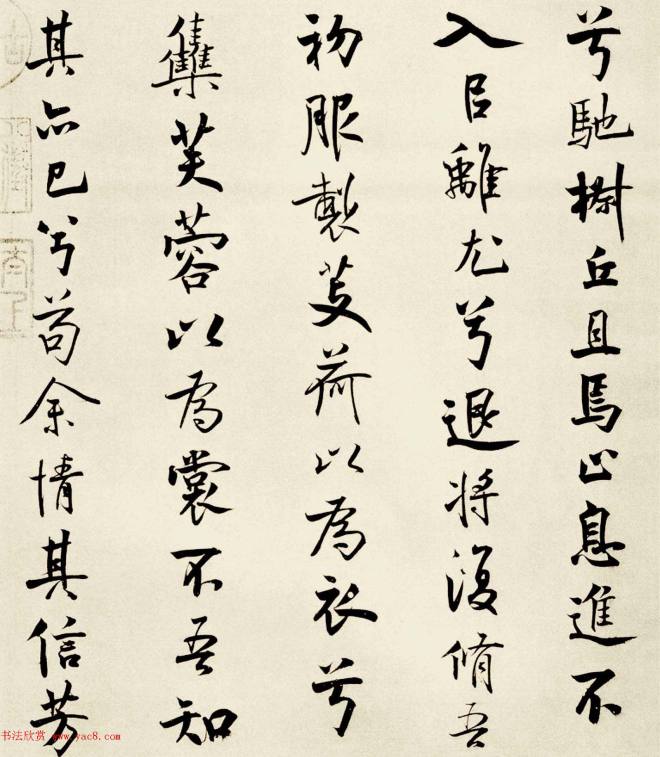 兮馳椒丘且焉止息進不
入㠯離尤兮退将復脩吾
初服製芰荷以為衣兮
雧芙蓉以為裳不吾知
其亦已兮苟余情其信芳
书法欣赏 www.yac8.com